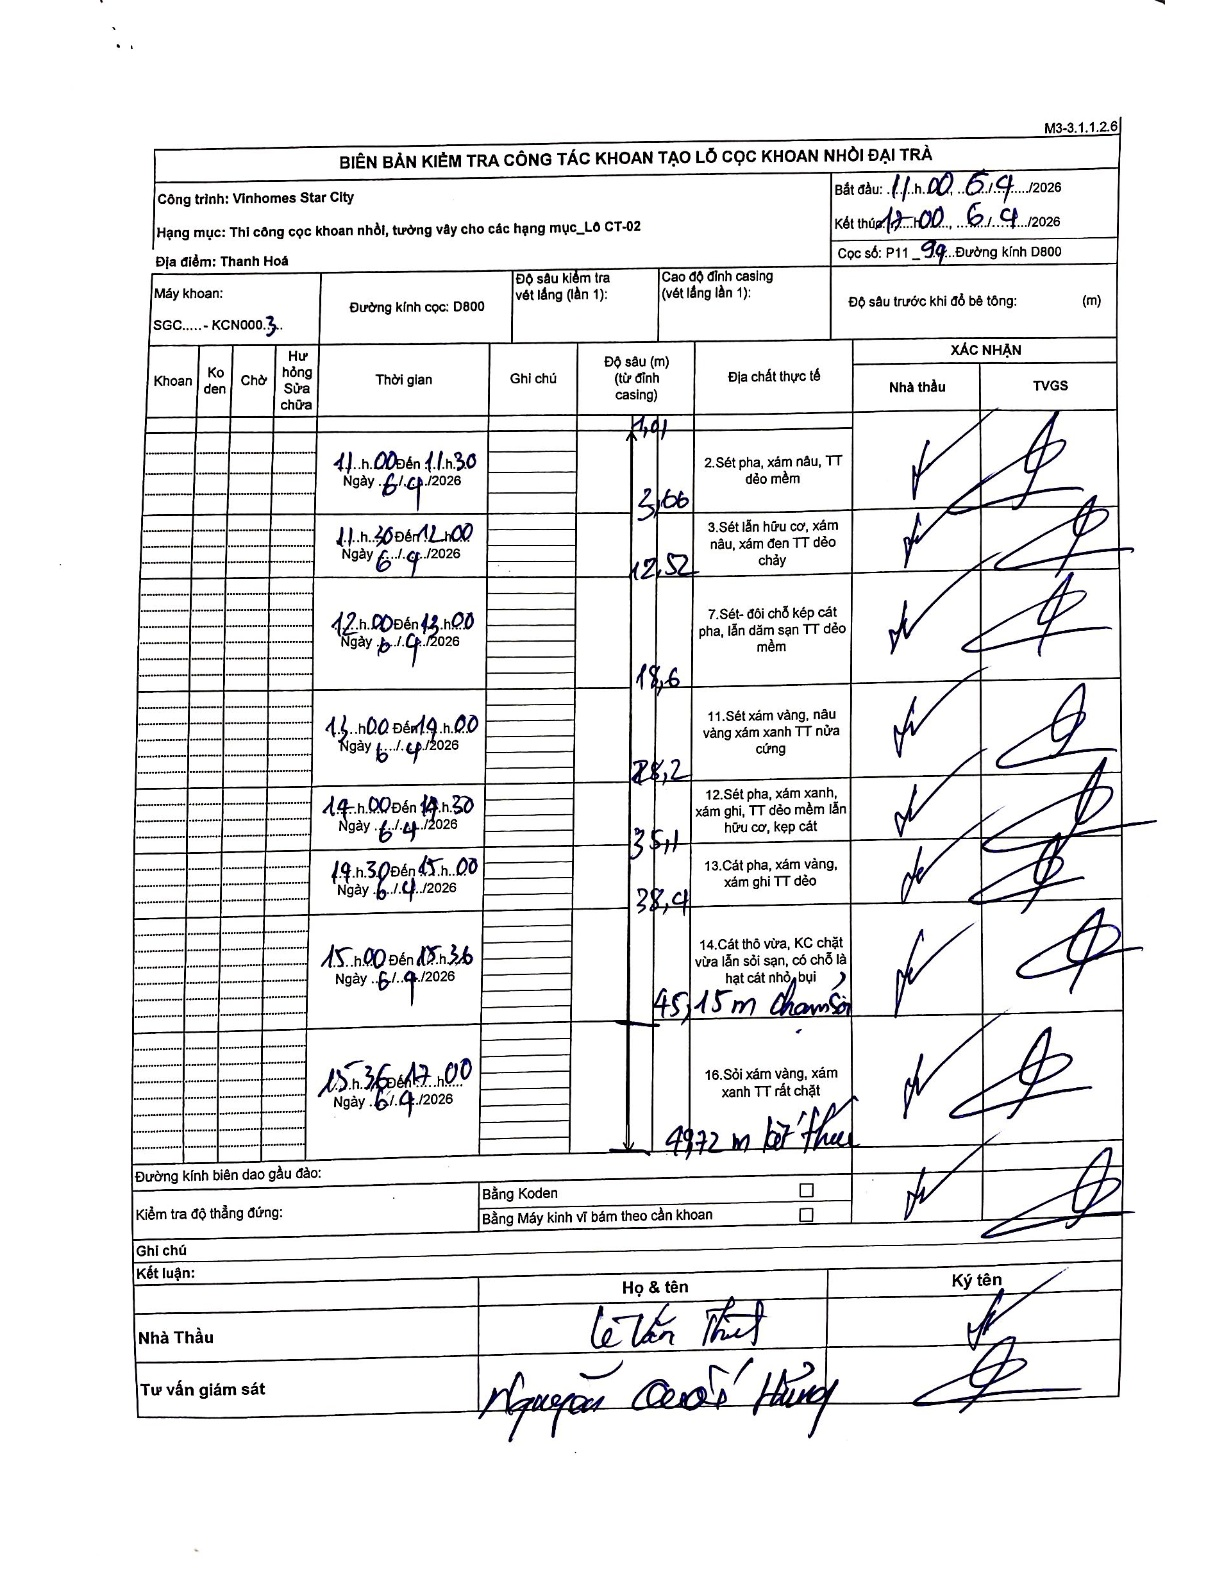 M3-3.1.1.2.6
BIÊN BẢN KIỂM TRA CÔNG TÁC KHOAN TẠO LỖ CỌC KHOAN NHỒI ĐẠI TRÀ
Công trình: Vinhomes Star City
Bắt đầu: 11.h.00, 6/4/2026
Hạng mục: Thi công cọc khoan nhồi, tường vây cho các hạng mục_Lô CT-02
Kết thúc 17h00, 6/4/2026
Địa điểm: Thanh Hoá
Cọc số: P11_99 Đường kính D800
Máy khoan:
SGC.....- KCN000.3..
Đường kính cọc: D800
Độ sâu kiểm tra
vét lắng (lần 1):
Cao độ đỉnh casing
(vét lắng lần 1):
Độ sâu trước khi đổ bê tông: (m)
Khoan
Ko
den
Chờ
Hư
hỏng
Sửa
chữa
Thời gian
Ghi chú
Độ sâu (m)
(từ đỉnh
casing)
Địa chất thực tế
XÁC NHẬN
Nhà thầu
TVGS
1,01
11.h.00 Đến 11.h.30
Ngày 6/4/2026
2.Sét pha, xám nâu, TT
dẻo mềm
3,66
11.h.30 Đến 12.h00
Ngày 6/4/2026
3.Sét lẫn hữu cơ, xám
nâu, xám đen TT dẻo
chảy
12,52
12.h.00 Đến 13.h.00
Ngày 6/4/2026
7.Sét- đôi chỗ kép cát
pha, lẫn dăm sạn TT dẻo
mềm
18,6
13.h00 Đến 14.h.00
Ngày 6/4/2026
11.Sét xám vàng, nâu
vàng xám xanh TT nửa
cứng
28,2
14.h.00 Đến 14.h.30
Ngày 6/4/2026
12.Sét pha, xám xanh,
xám ghi, TT dẻo mềm lẫn
hữu cơ, kẹp cát
35,1
14.h.30 Đến 15.h.00
Ngày 6/4/2026
13.Cát pha, xám vàng,
xám ghi TT dẻo
38,4
15.h00 Đến 15.h.36
Ngày 6/4/2026
14.Cát thô vừa, KC chặt
vừa lẫn sỏi sạn, có chỗ là
hạt cát nhỏ, bụi
45,15 m chạm sỏi
15.h.36 Đến 17.h.00
Ngày 6/4/2026
16.Sỏi xám vàng, xám
xanh TT rất chặt
49,72 m kết thúc
Đường kính biên dao gầu đào:
Kiểm tra độ thẳng đứng:
Bằng Koden
Bằng Máy kinh vĩ bám theo cần khoan
Ghi chú
Kết luận:
Họ & tên
Ký tên
Nhà Thầu
Lê Văn
Tư vấn giám sát
Nguyễn Quốc Hùng